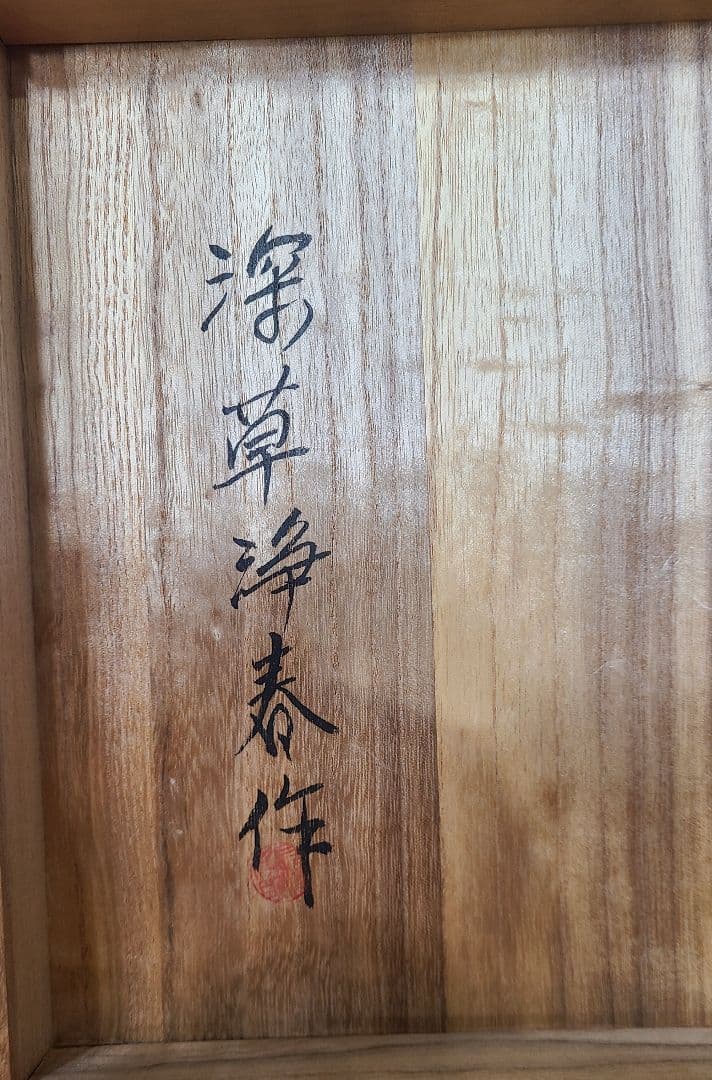 深草浄春作